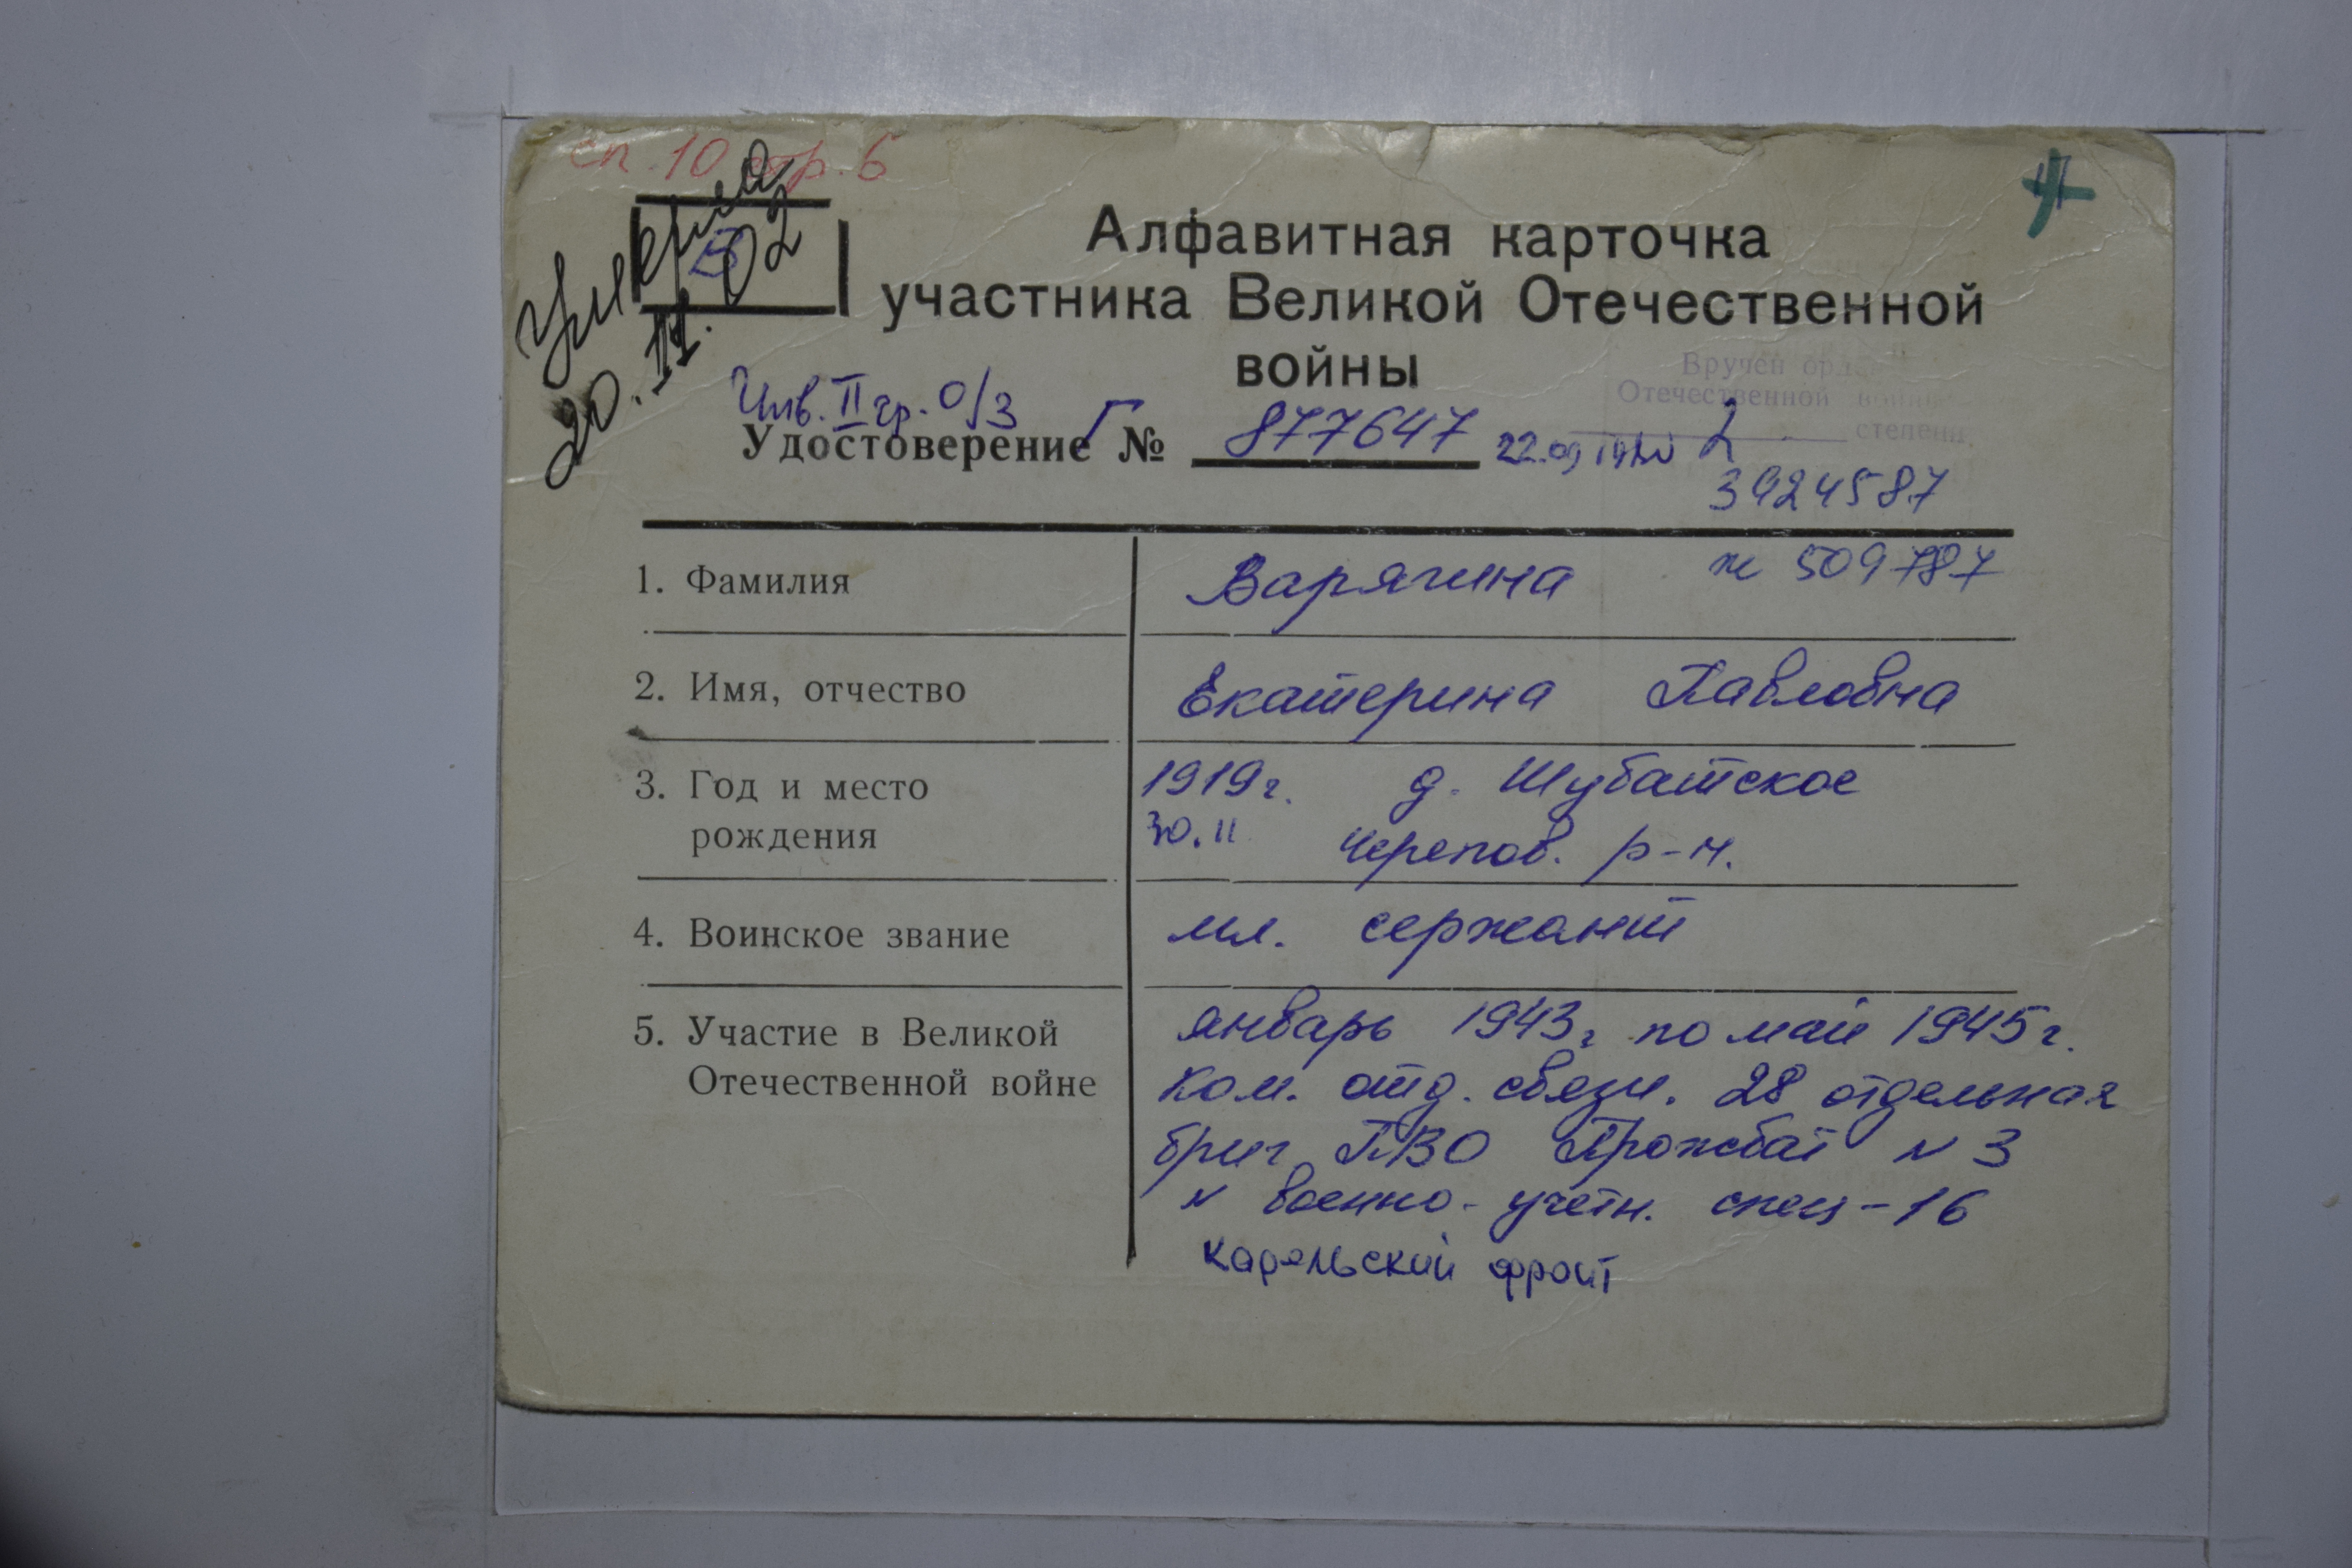 сп. 10 стр. 6
Умерла
20.II.02
В
Алфавитная карточка
участника Великой Отечественной
войны
Вручен орден
Отечественной войны
2 степени.
Инв. II гр. о/з
Удостоверение Г № 877647 22.09
3924587
1. Фамилия Варягина № 509787
2. Имя, отчество Екатерина Павловна
3. Год и место 1919г. д. Шубатское
рождения 30.11 черепов. р-н.
4. Воинское звание мл. сержант
5. Участие в Великой январь 1943г по май 1945г.
Отечественной войне Ком. отд. связи. 28 отдельная
бриг ПВО Прожбат N 3
N военно-учетн. спец-16
Карельский фронт